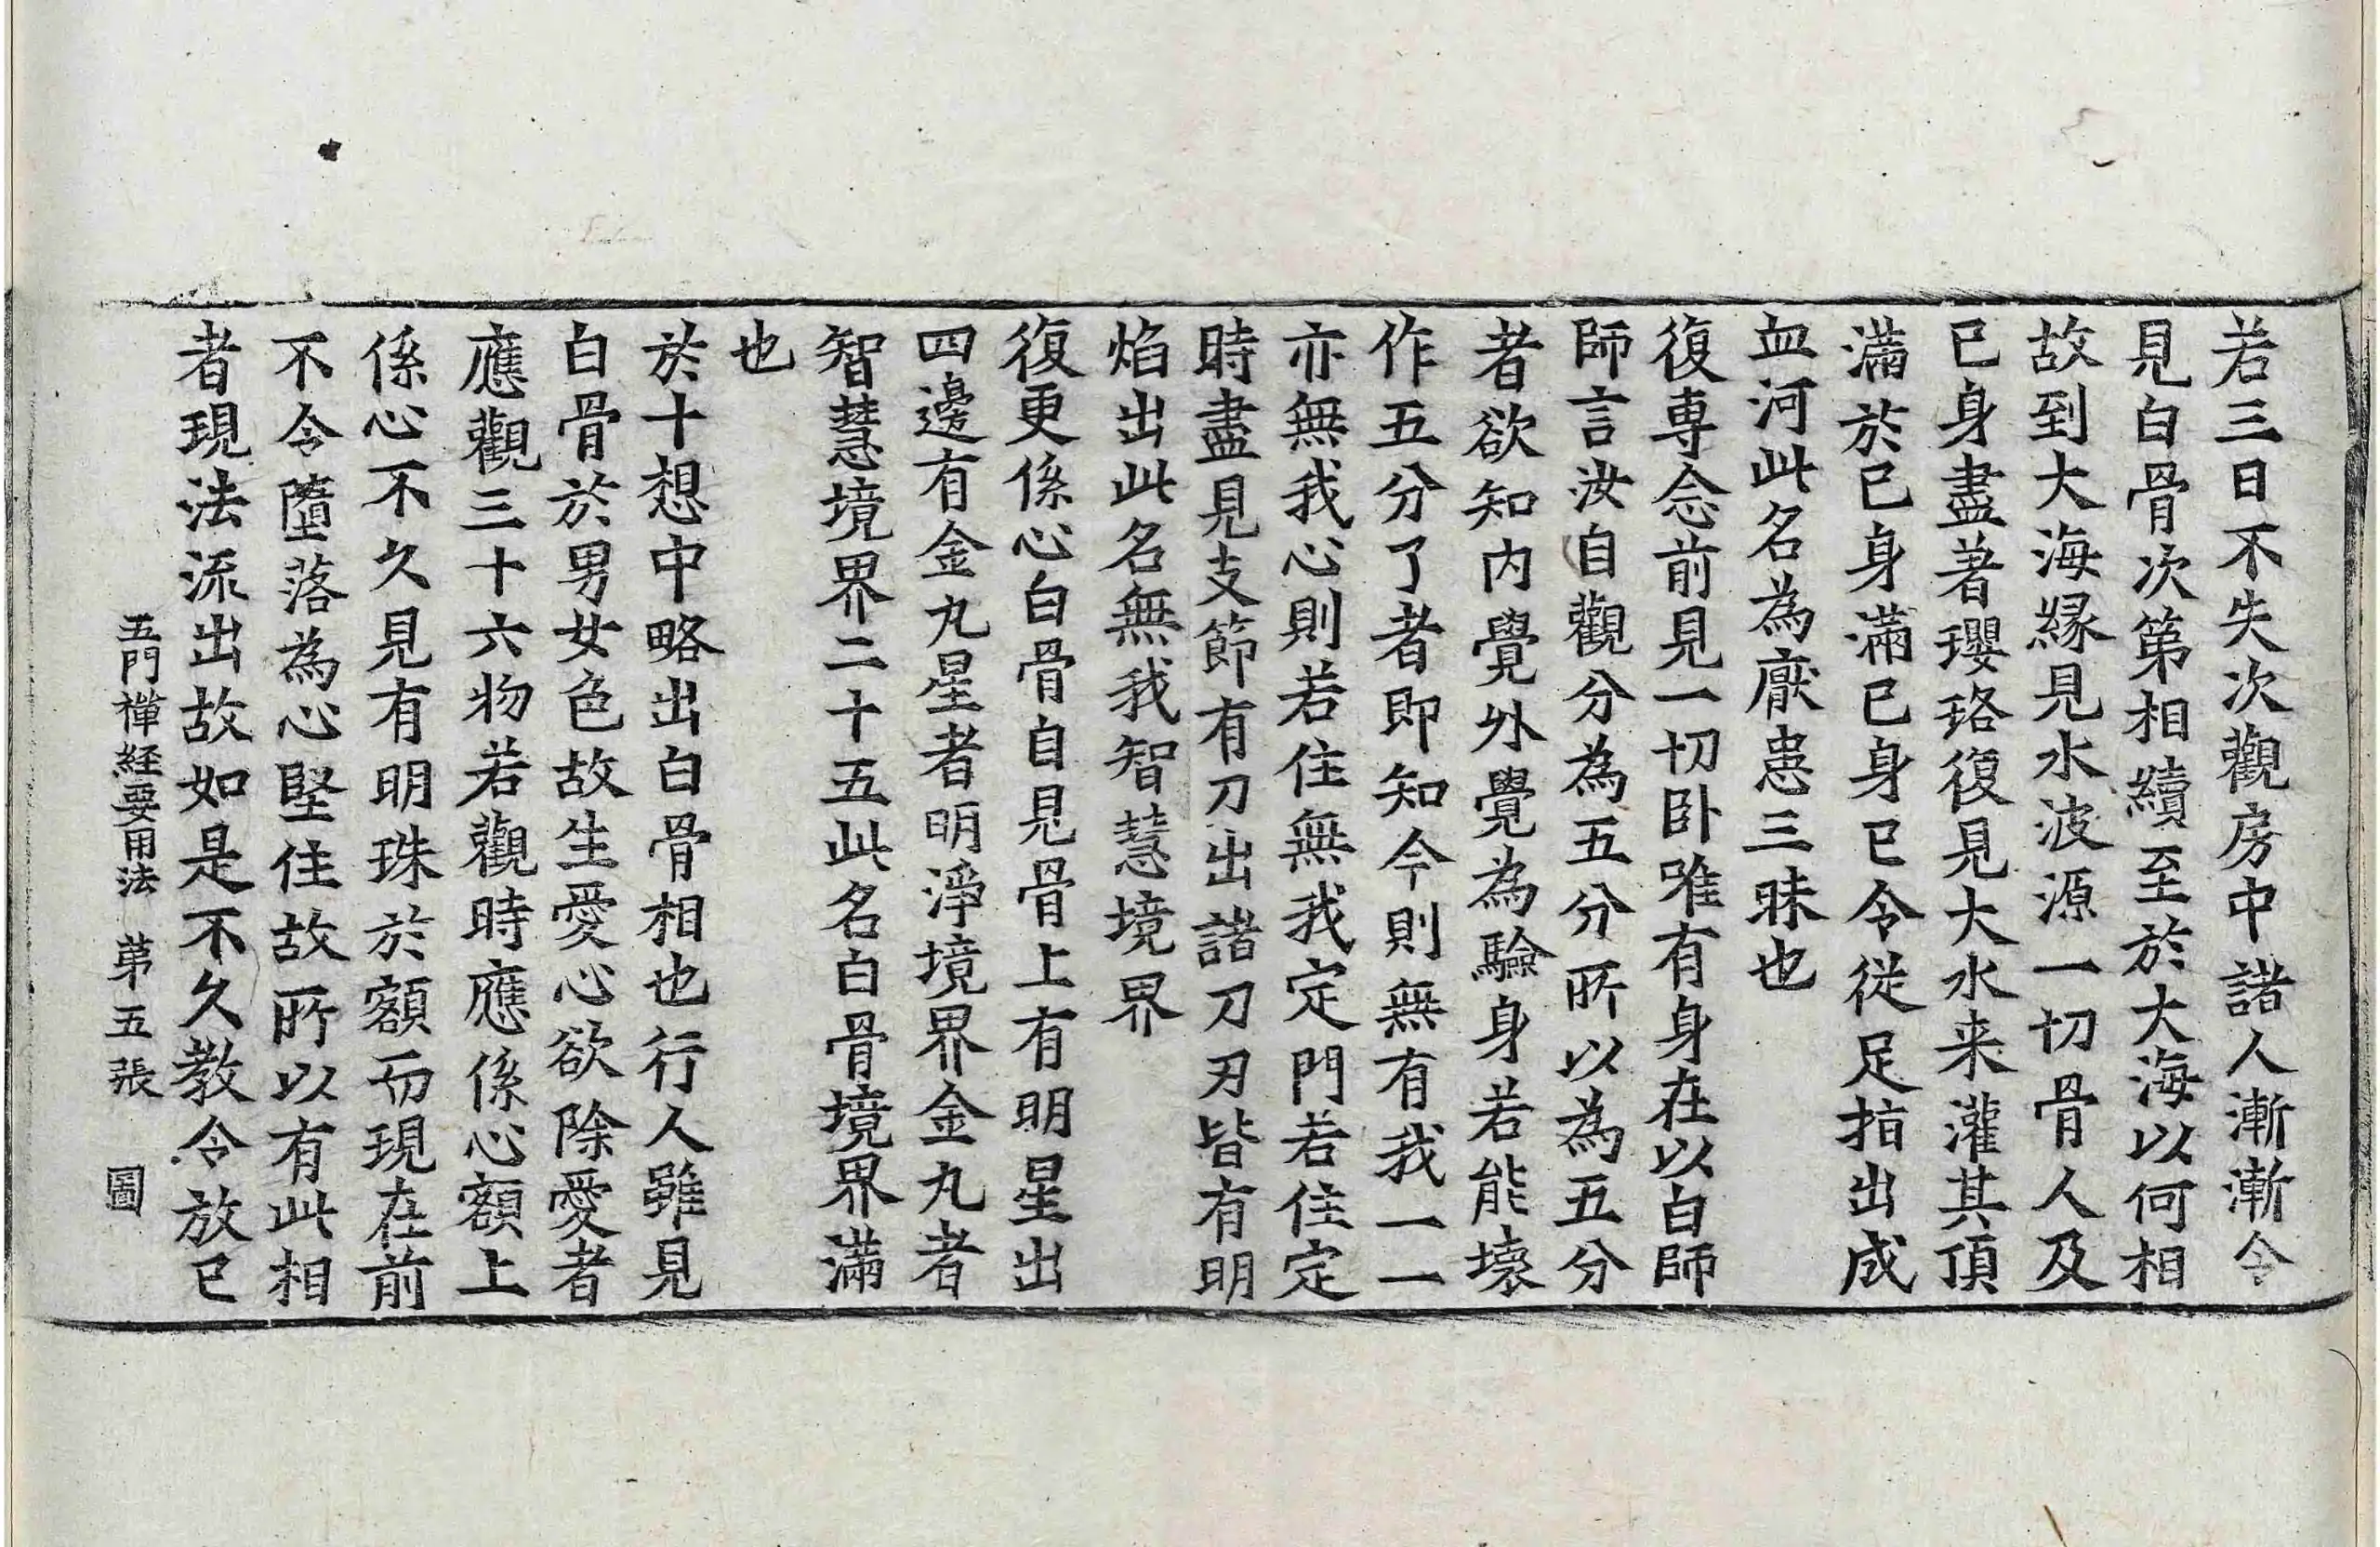 若三日不失次觀房中諸人漸漸令
見白骨次第相續至於大海以何相
故到大海緣見水波源一切骨人及
已身盡著瓔珞復見大水来灌其頂
滿於已身滿已身已令従足指出成
血河此名為厭患三昧也
復專念前見一切卧唯有身在以白師
師言汝自觀分為五分所以為五分
者欲知内覺外覺為驗身若能壞
作五分了者即知今則無有我一一
亦無我心則若住無我定門若住定
時盡見支節有刀出諸刀刃皆有明
焰出此名無我智慧境界
復更係心白骨自見骨上有明星出
四邊有金丸星者明淨境界金丸者
智慧境界二十五此名白骨境界滿
也
於十想中略出白骨相也行人雖見
白骨於男女色故生愛心欲除愛者
應觀三十六物若觀時應係心額上
係心不久見有明珠於額而現在前
不令墮落為心堅住故所以有此相
者現法流出故如是不久教令放已
五門禪経要用法 第五張 圖